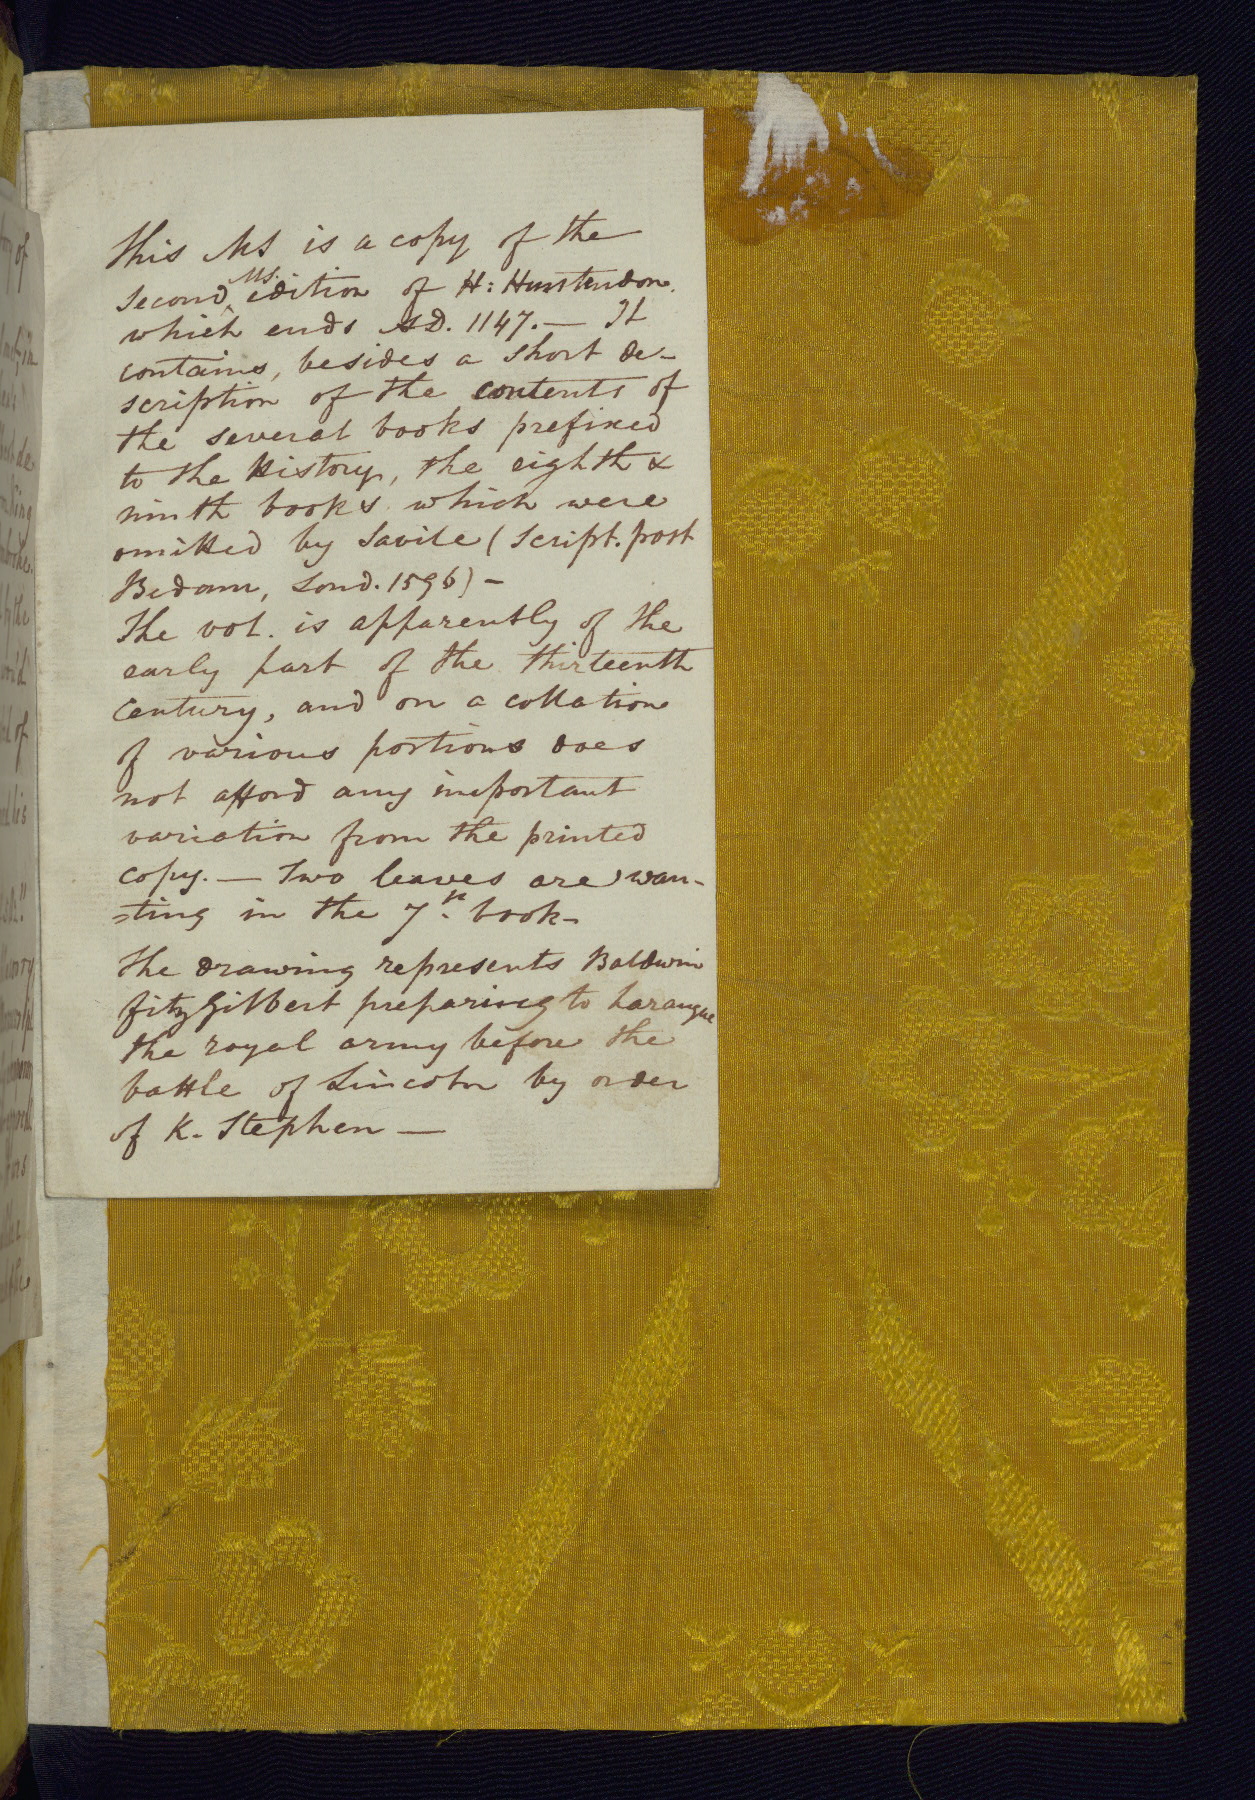 This MS is a copy of the
second MS. edition of H: Huntendon.
which ends AD. 1147. — It
contains, besides a short de-
scription of the contents of
the several books prefixed
to the History, the eighth &
ninth books which were
omitted by Savile (Script. post
Bedam, Lond. 1596) -
The vol. is apparently of the
early part of the thirteenth
century, and on a collation
of various portions does
not afford any important
variation from the printed
copy. — Two leaves are wan-
ting in the 7th book-
The drawing represents Baldwin
fitz Gilbert preparing to harangue
the royal army before the
battle of Lincoln by order
of K. Stephen —